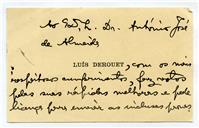 Ao Ex.mo Sr. Dr. António José
de Almeida
LUÍS DEROUET, com os mais
respeitosos cumprimentos, faz votos
pelas suas rápidas melhoras e pede
licença para enviar as inclusas provas